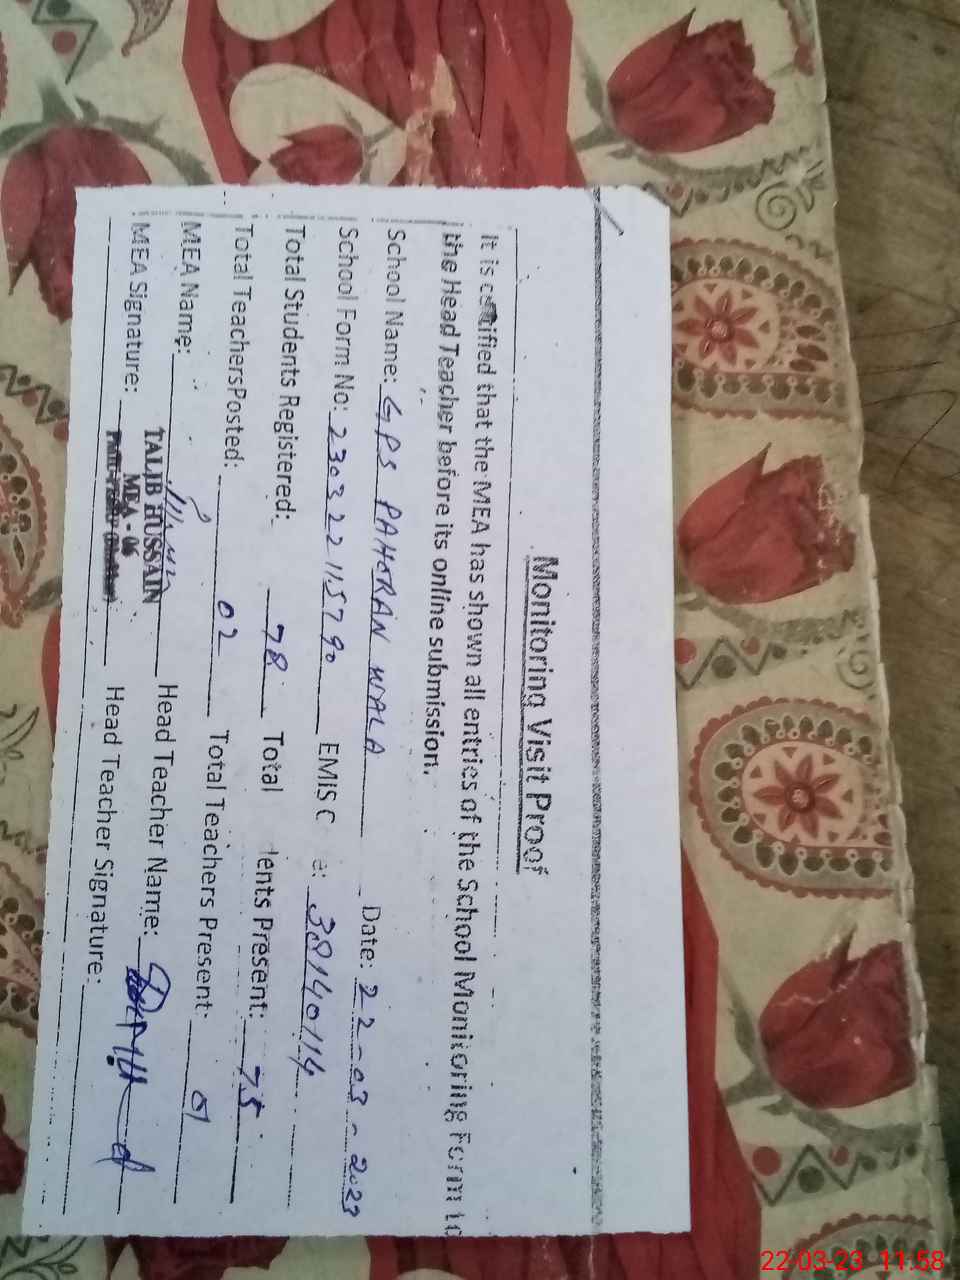 Monitoring Visit Proof
It is certified that the MEA has shown all entries of the School Monitoring Form to
the Head Teacher before its online submission.
School Name: GPS PAHORAN WALA Date: 22-03-2023
School Form No: 230322115790 EMIS C e: 38140114
Total Students Registered: 78 Total ents Present: 75
Total TeachersPosted: 02 Total Teachers Present: 01
MEA Name: Head Teacher Name:
MEA Signature: Head Teacher Signature:
TALIB HUSSAIN
MEA - 06
22-03-23 11:58